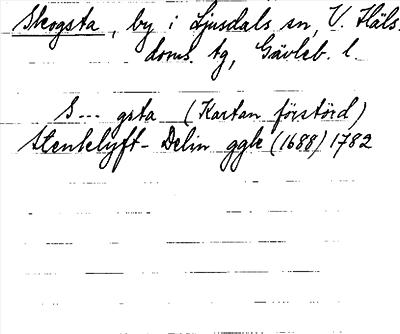 Skogsta, by i Ljusdals sn, V. Häls.
doms tg, Gävleb. l.
S--- gsta (Kartan förstörd)
Stentelyft- Delin ggk (1688) 1782